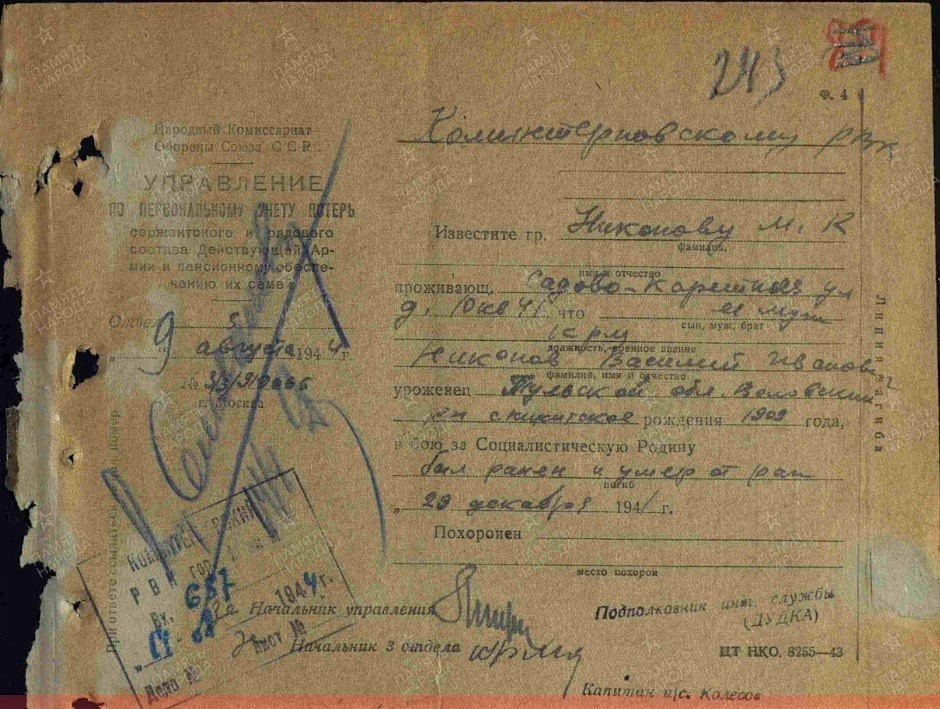 243
Ф. 4
Народный Комиссариат
Обороны Союза ССР
УПРАВЛЕНИЕ
ПО ПЕРСОНАЛЬНОМУ УЧЕТУ ПОТЕРЬ
сержантского и рядового
состава Действующей Ар-
мии и пенсионному обеспе-
чению их семей
Отдел
9 августа 1944 г.
№
г. Москва
При ответе ссылаться на наш номер
Коминтерновскому РВК
Известите гр. Никонову М. К
фамилия,
имя и отчество
проживающ. Садово-Каретная ул
д. 10 кв 41, что ее муж
сын, муж, брат
кр-ц
должность, военное звание
Никонов Василий Иванович
фамилия, имя и отчество
уроженец Тульской обл. Воловский
рн с. Никитское рождения 1909 года,
в бою за Социалистическую Родину
был ранен и умер от ран
погиб
„ 29 декабря 1941 г.
Похоронен
место похорон
Линия загиба
РВК гор.
Вх. 687
1944 г.
Дело № Лист №
Начальник управления
Подполковник инт. службы
(ДУДКА)
Начальник 3 отдела
ЦТ НКО. 8255—43
Капитан и/с. Колесов
ПАМЯТЬ НАРОДА